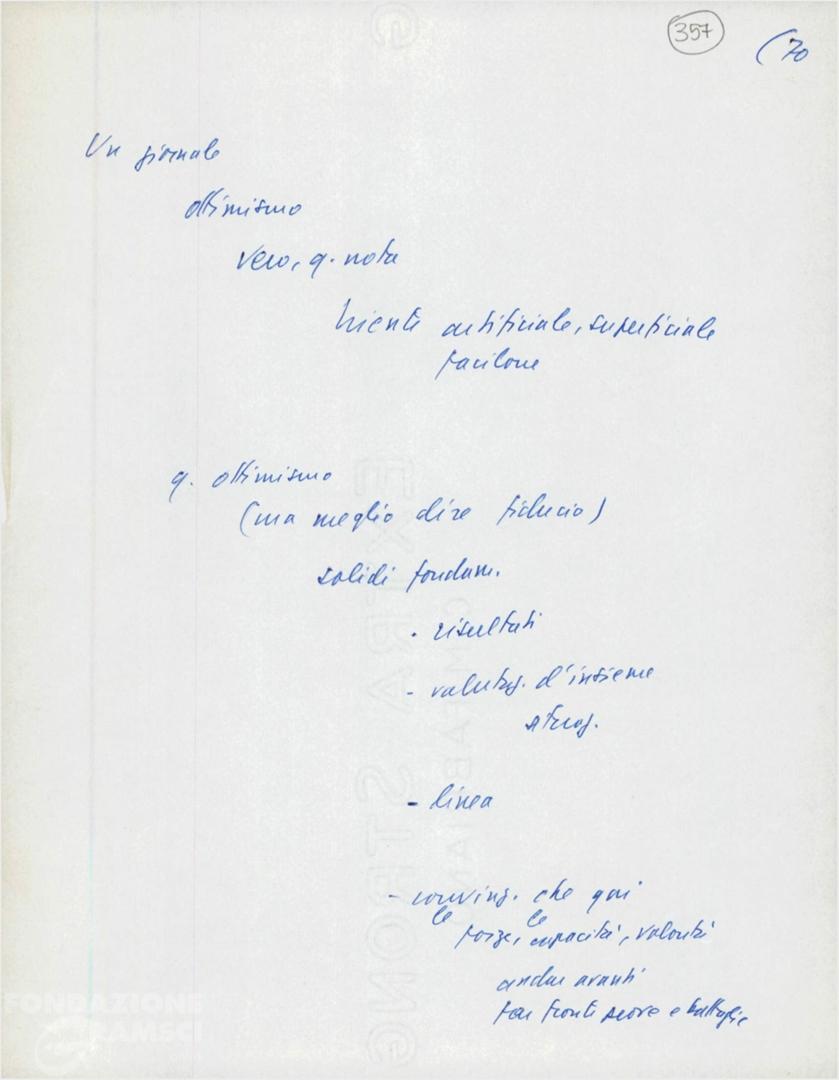 357
(70
Un giornale
ottimismo
vero, q. nota
niente artificiale, superficiale
facilone
q. ottimismo
(ma meglio dire fiducia)
solidi fondam.
- risultati
- valutaz. d'insieme
situaz.
- linea
- convinz. che qui
le forze, le capacità, volontà
andar avanti
far fronte prove e battaglie
FONDAZIONE
GRAMSCI
EXTRA STRONG